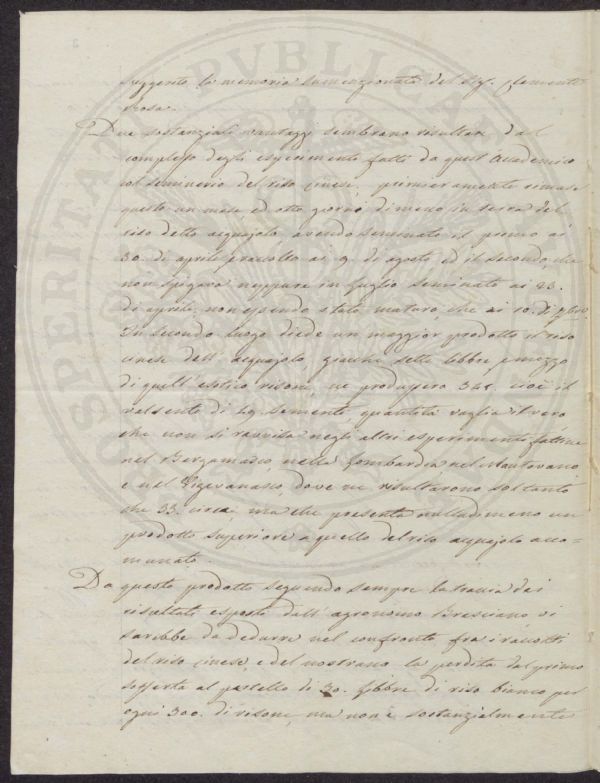 suggerito la memoria summenzionata del Sig. Clemente
Rosa.
Due sostanziali vantaggi sembrano risultare dal
complesso degli esperimenti fatti da quest'Accademico
sul seminerio del riso cinese, primieramente rimase
questo un mese ed otto giorni di meno in terra del
riso detto acquajolo, avendo seminato il primo ai
30. di aprile raccolto ai 9. di agosto, ed il secondo, che
non spigava neppure in luglio seminato ai 23.
di aprile, non essendo stato maturo, che ai 10. di 7bre.
In secondo luogo diede un maggior prodotto il riso
cinese dell'acquajolo, giacchè sette libbre e mezzo
di quell'estico risone, ne produssero 365, cioè il
relsente di 49. sementi, quantità vaglia il vero,
che non si ravvisa negli altri esperimenti fattine
nel Bergamasco, nella Lombardia nel Mantovano
e nel Vigevanasco, dove ne risultarono soltanto
che 33. circa, ma che presenta nulladimeno un
prodotto superiore a quello del riso acquajolo acco-
munato.
Da questo prodotto seguendo sempre la traccia dei
risultati esposti dall'agronomo Bresciano, vi
sarebbe da dedurre nel confronto fra i raccolti
del riso cinese, e del nostrano la perdita dal primo
sofferta al pestello di 30. libbre di riso bianco per
ogni 300. di risone, ma non è sostanzialmente
PVBLICAE
PROSPERITATI